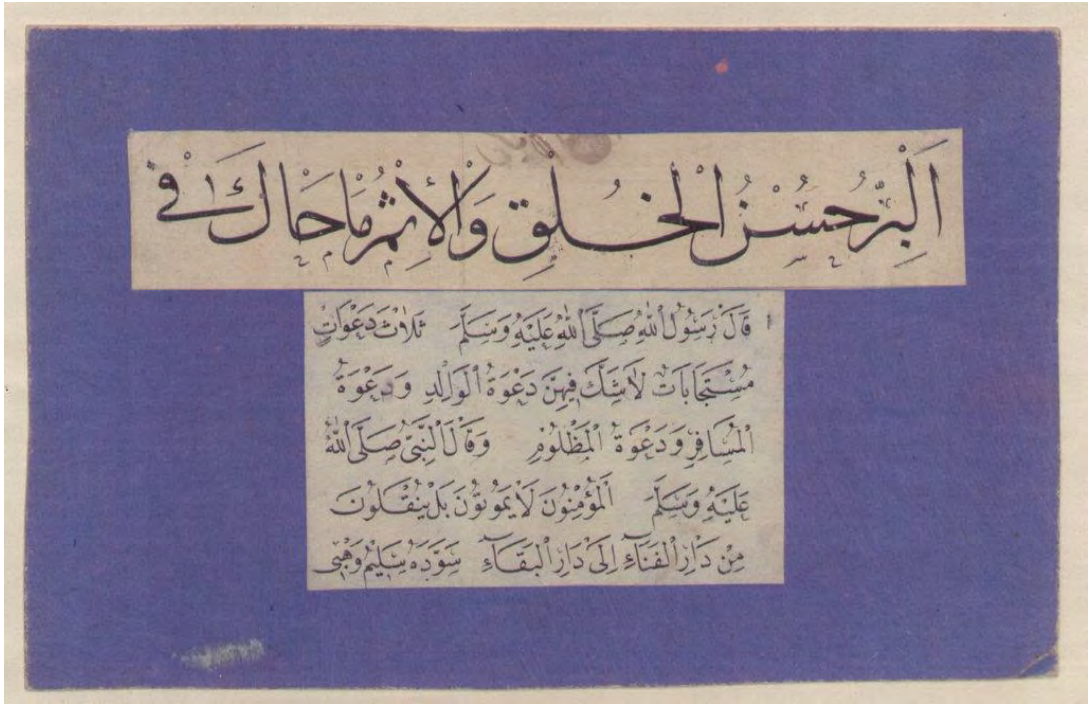 اَلْبِرُّ حُسْنُ الْخُلْقِ وَالْاِثْمُ مَا حَاكَ فِي
قَالَ رَسُولُ اللهِ صَلَّى اللهُ عَلَيْهِ وَسَلَّمَ ثَلَاثُ دَعَوَاتٍ
مُسْتَجَابَاتٌ لَاشَكَّ فِيهِنَّ دَعْوَةُ الْوَالِدِ وَدَعْوَةُ
الْمُسَافِرِ وَدَعْوَةُ الْمَظْلُومِ وَقَالَ النَّبِيُّ صَلَّى اللهُ
عَلَيْهِ وَسَلَّمَ اَلْمُؤْمِنُونَ لَا يَمُوتُونَ بَلْ يُنْقَلُونَ
مِنْ دَارِ الْفَنَاءِ اِلَى دَارِ الْبَقَاءِ سَوَّدَهُ سَلِيمْ وَهْبِي